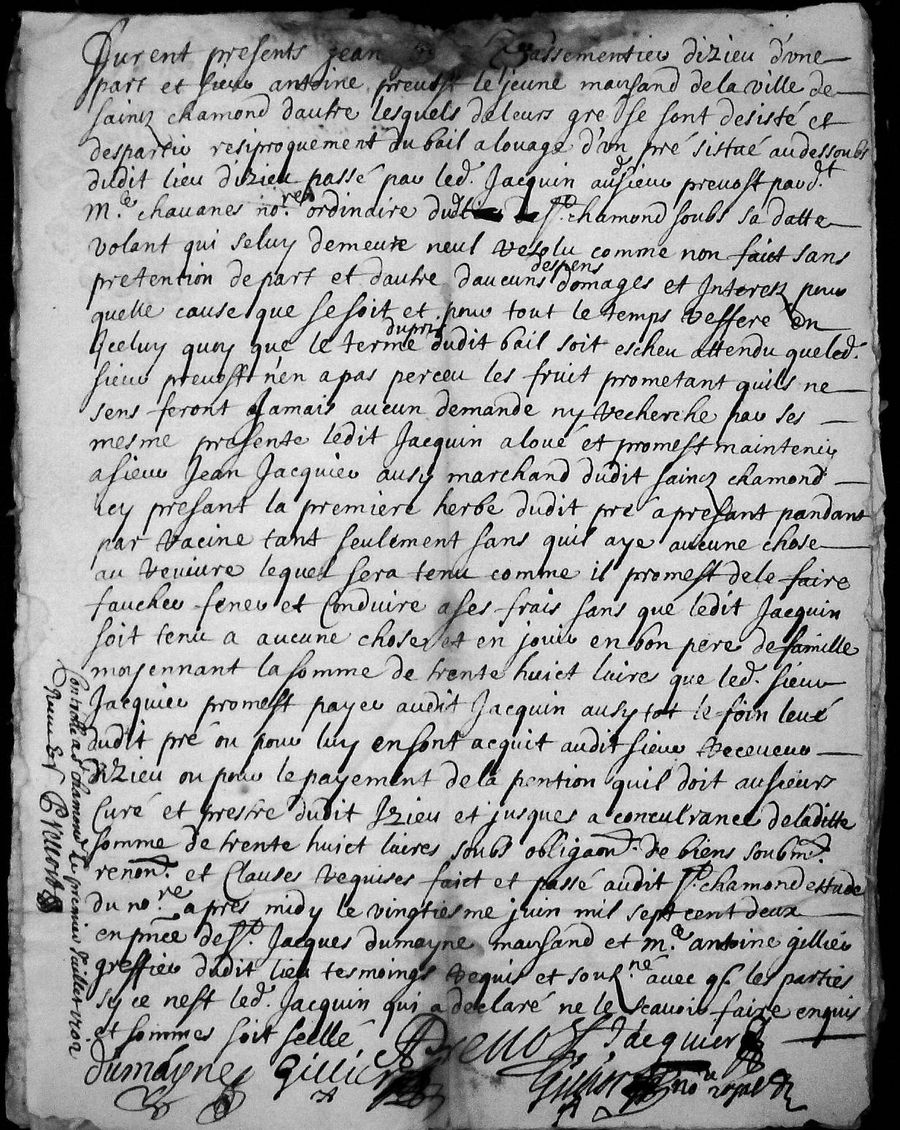 Furent presents jean passementier dizieu d'vne
part et sieur antoine preuost le jeune marsand de la ville de
sainct chamond dautre lesquels de leurs gre se sont desisté et
despartir resiproquement du bail a louage d'vn pré sistué au dessoubs
dudit lieu dizieu passé par led. Jacquin audt sieur preuost pardt
M.e chauanes no.re ordinaire dudt St. chamond soubs sa datte
volant qui seluy demeure neul resolu comme non faict sans
pretention de part et dautre daucuns despens domages et Interetz pour
quelle cause que se soit et pour tout le temps reffere en
Jceluy quoy que le terme du prix dudit bail soit escheu attendu que led.
sieur preuost n'en a pas perceu les fruit prometant quils ne
sens feront Jamais aucun demande ny recherche par ses
mesme presente ledit Jacquin a loué et promest maintenir
a sieur Jean Jacquier ausy marchand dudit sainct chamond
icy presant la premiere herbe dudit pré a presant pandant
par racine tant seulement sans quil aye aucune chose
au reuiure lequel sera tenu comme il promest de le faire
faucher fener et Conduire a ses frais sans que ledit Jacquin
soit tenu a aucune chose et en jouir en bon pere de famille
moyennant la somme de trente huict liures que led. sieur
Jacquier promest payer audit Jacquin ausy tot le foin leué
dudit pré ou pour luy en sont acquit audit sieur receueur
dizieu ou pour le payement de la pention quil doit au sieurs
Curé et prestre dudit Izieu et jusques a concurance de laditte
somme de trente huict liures soubs obligaon. de biens soubm.
renon. et Clauses requises faict et passé audit St. chamond estude
du no.re apres midy le vingtiesme juin mil sept cent deux
en pnce de Sr. Jacques dumayne marsand et m.e antoine gillier
greffier dudit lieu tesmoings requis et soub.né auec les parties
sy ce nest led. Jacquin qui a declaré ne le scauoir faire enquis
et sommés soit scellé
Preuost Jacquier
dumayne Gillier
no.re royal
Controllé a St chamond le premier Juillet 1702
Receu
Preuost